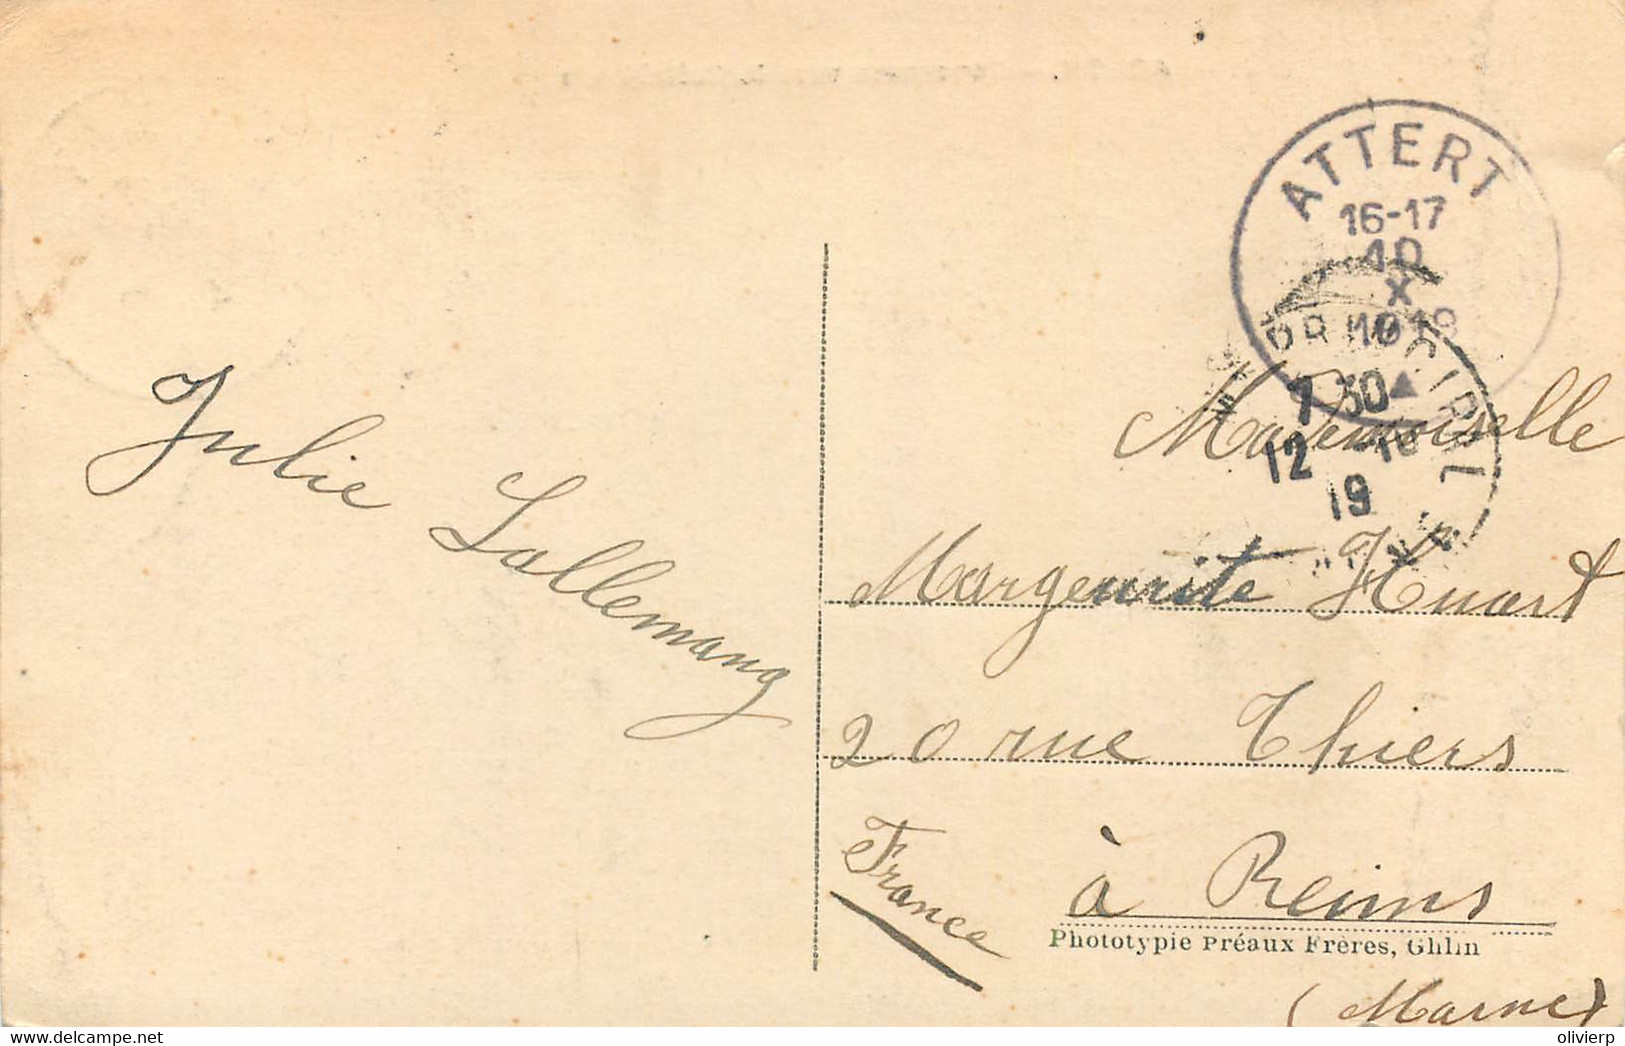 ATTERT
16-17
10
X
1919
7 30
12 -10
19
Julie Lallemang
Mademoiselle
Margeurite Huart
20 rue Thiers
à Reims
France
Phototypie Préaux Frères, Ghlin
(Marne)
olivierp